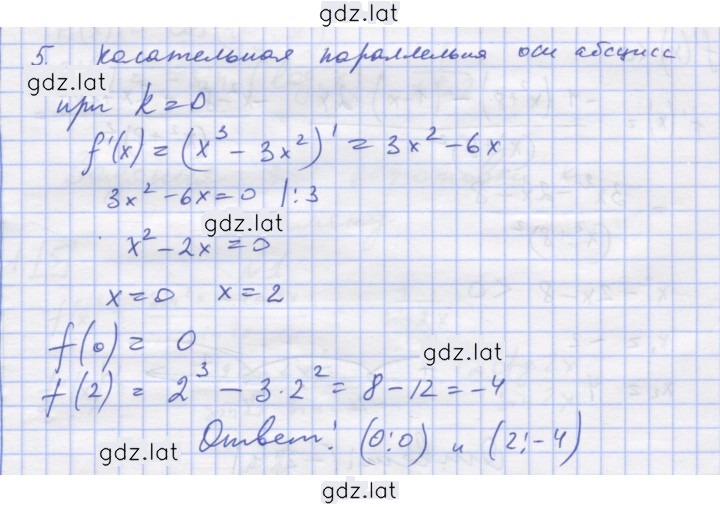 gdz.lat
5. касательная параллельна оси абсцисс
gdz.lat
при k = 0
f'(x) = (x³ - 3x²)' = 3x² - 6x
3x² - 6x = 0 |:3
gdz.lat
x² - 2x = 0
x = 0 x = 2
f(0) = 0
gdz.lat
f(2) = 2³ - 3·2² = 8 - 12 = -4
Ответ: (0;0) и (2;-4)
gdz.lat
gdz.lat